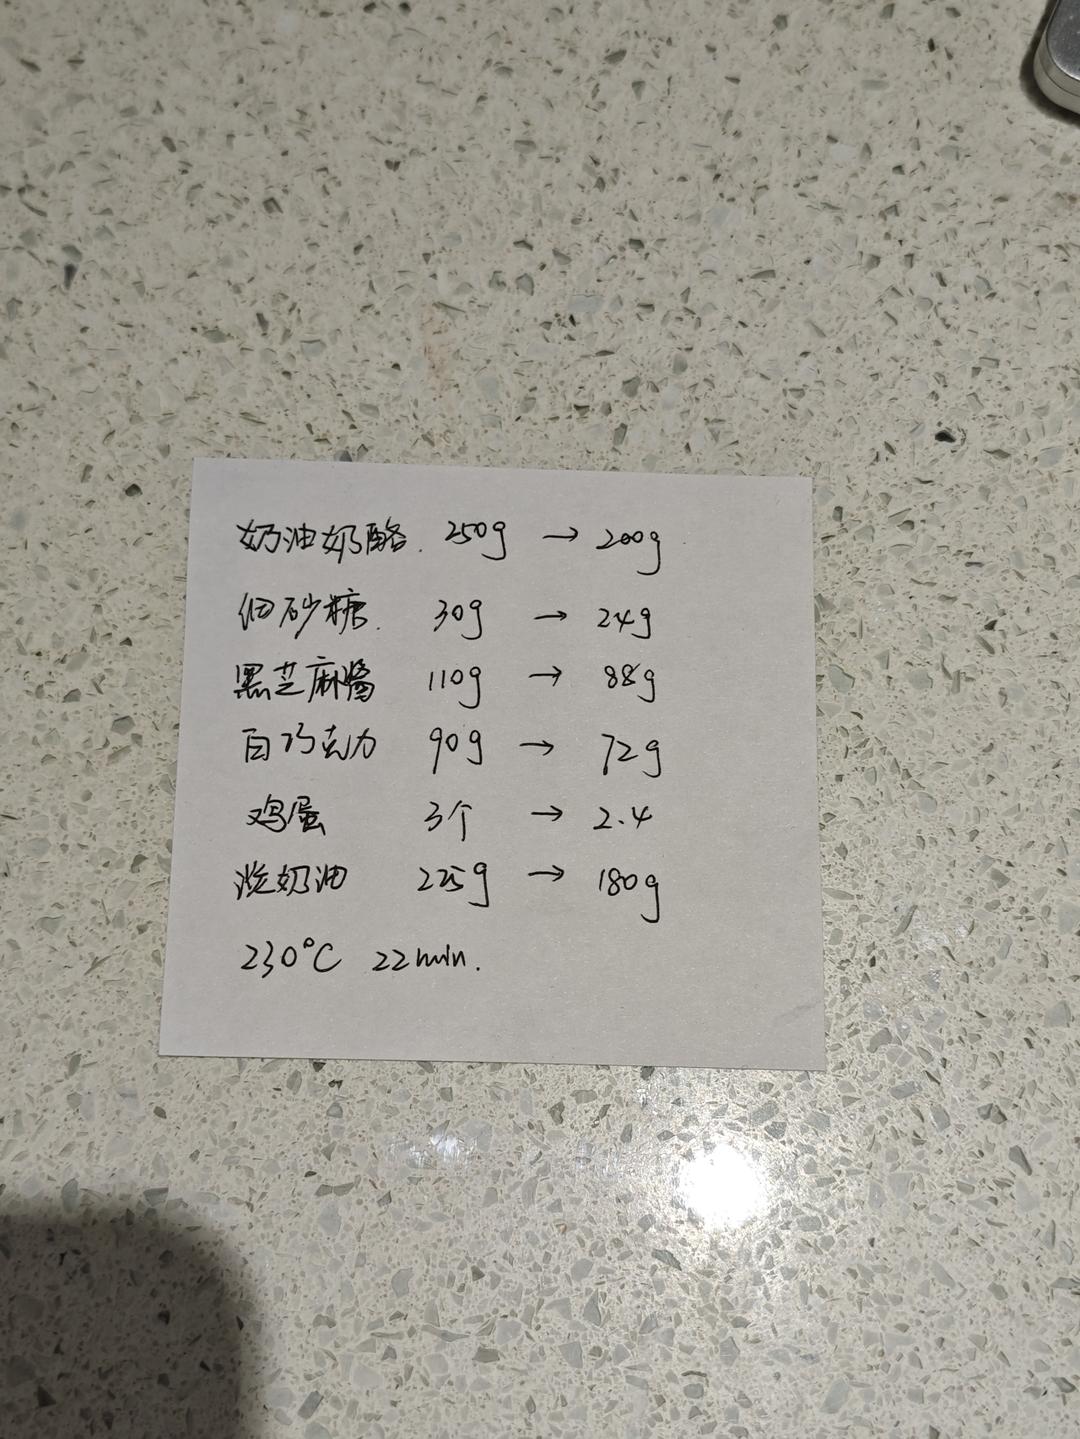 奶油奶酪. 250g → 200g
细砂糖. 30g → 24g
黑芝麻酱 110g → 88g
白巧克力 90g → 72g
鸡蛋 3个 → 2.4
淡奶油 225g → 180g
230°C 22min.